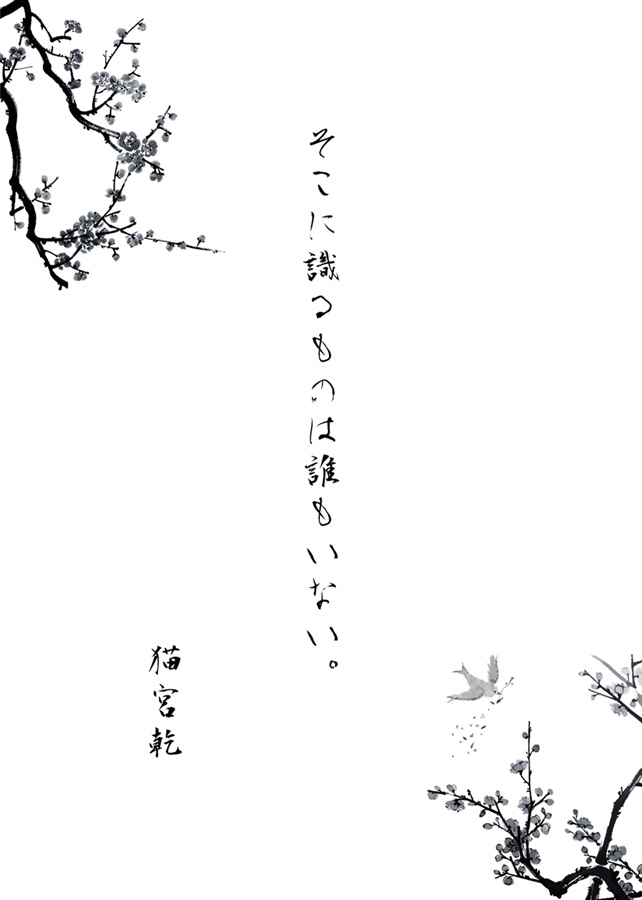 そこに識るものは誰もいない。
猫宮乾